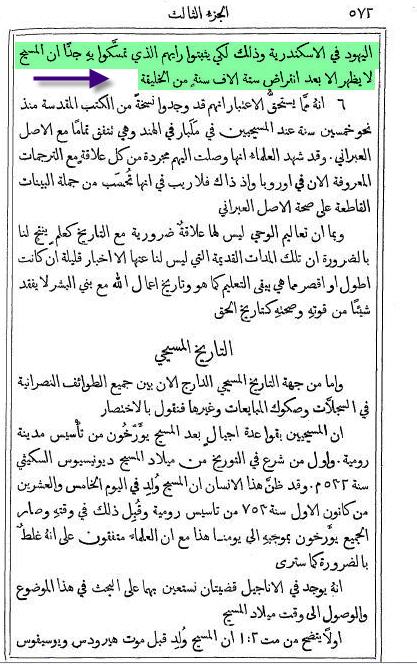 ٥٧٢ الجزء الثالث
اليهود في الاسكندرية وذلك لكي يثبتوا رايهم الذي تمسَّكوا بهِ جدًّا ان المسيح
لا يظهر الا بعد انقراض ستة الاف سنة من الخليقة
٦ انهُ ممَّا يستحقُّ الاعتبار انهم قد وجدوا نسخةً من الكتب المقدسة منذ
نحو خمسين سنة عند المسيحيين في مَلَبار في الهند وهي نتفق تمامًا مع الاصل
العبراني . وقد شهد العلماء انها وصلت اليهم مجردة من كل علاقةٍ مع الترجمات
المعروفة الان في اوروبا وإذ ذاك فلا ريب في انها تُحسَب من جملة البينات
القاطعة على صحة الاصل العبراني
وبما ان تعاليم الوحي ليس لها علاقةٌ ضرورية مع التاريخ كعلمٍ ينتج لنا
بالضرورة ان تلك المدات القديمة التي ليس لنا عنها الا اخبار قليلة ان كانت
اطول او اقصر مما هي يبقى التعليم كما هو وتاريخ اعمال الله مع بني البشر لا يفقد
شيئًا من قوتهِ وصحتهِ كتاريخ الحق
التاريخ المسيحي
واما من جهة التاريخ المسيحي الدارج الان بين جميع الطوائف النصرانية
في السجلات وصكوك المبايعات وغيرها فنقول بالاختصار
ان المسيحيين بقوا عدة اجيال بعد المسيح يورّخون من تأسيس مدينة
رومية . واول من شرع في التوريخ من ميلاد المسيح ديونيسيوس السكيثي
سنة ٥٢٢ م . وقد ظنَّ هذا الانسان ان المسيح وُلِد في اليوم الخامس والعشرين
من كانون الاول سنة ٧٥٢ من تاسيس رومية وقُبِل ذلك في وقتهِ وصار
الجميع يورّخون بموجبهِ الى يومنا هذا مع ان العلماء متفقون على انهُ غلطٌ
بالضرورة كما سترى
انهُ يوجد في الاناجيل قضيتان نستعين بهما على البحث في هذا الموضوع
والوصول الى وقت ميلاد المسيح
اولًا يتضح من مت ٢:١ ان المسيح وُلِد قبل موت هيرودس ويوسيفوس